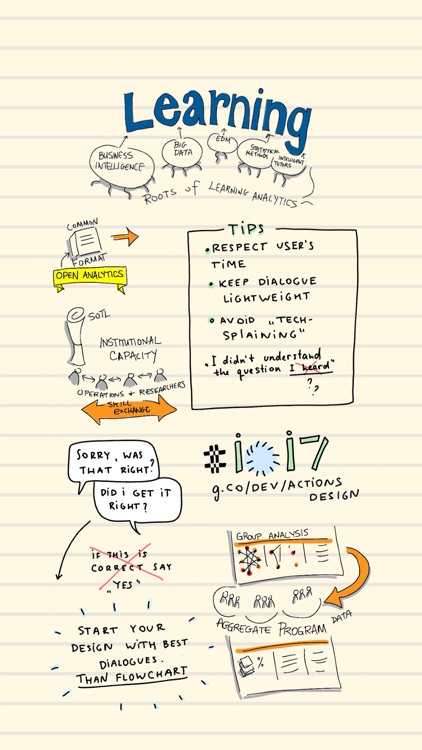 Learning
BUSINESS
INTELLIGENCE
BIG
DATA
EDM
STATISTICAL
METHODS
INTELLIGENT
TUTORS
ROOTS of LEARNING ANALYTICS
COMMON
FORMAT
OPEN ANALYTICS
SOTL
INSTITUTIONAL
CAPACITY
OPERATIONS & RESEARCHERS
SKILL
EXCHANGE
TIPS
• RESPECT USER'S
TIME
• KEEP DIALOGUE
LIGHTWEIGHT
• AVOID "TECH-
SPLAINING"
"I didn't understand
the question I heard"
? ?
SORRY, WAS
THAT RIGHT?
DID i GET iT
RIGHT?
#io17
g.co/DEV/ACTIONS
DESIGN
IF THIS IS
CORRECT SAY
"YES"
START YOUR
DESIGN WITH BEST
DIALOGUES.
THAN FLOWCHART
GROUP ANALYSIS
AGGREGATE PROGRAM DATA
%